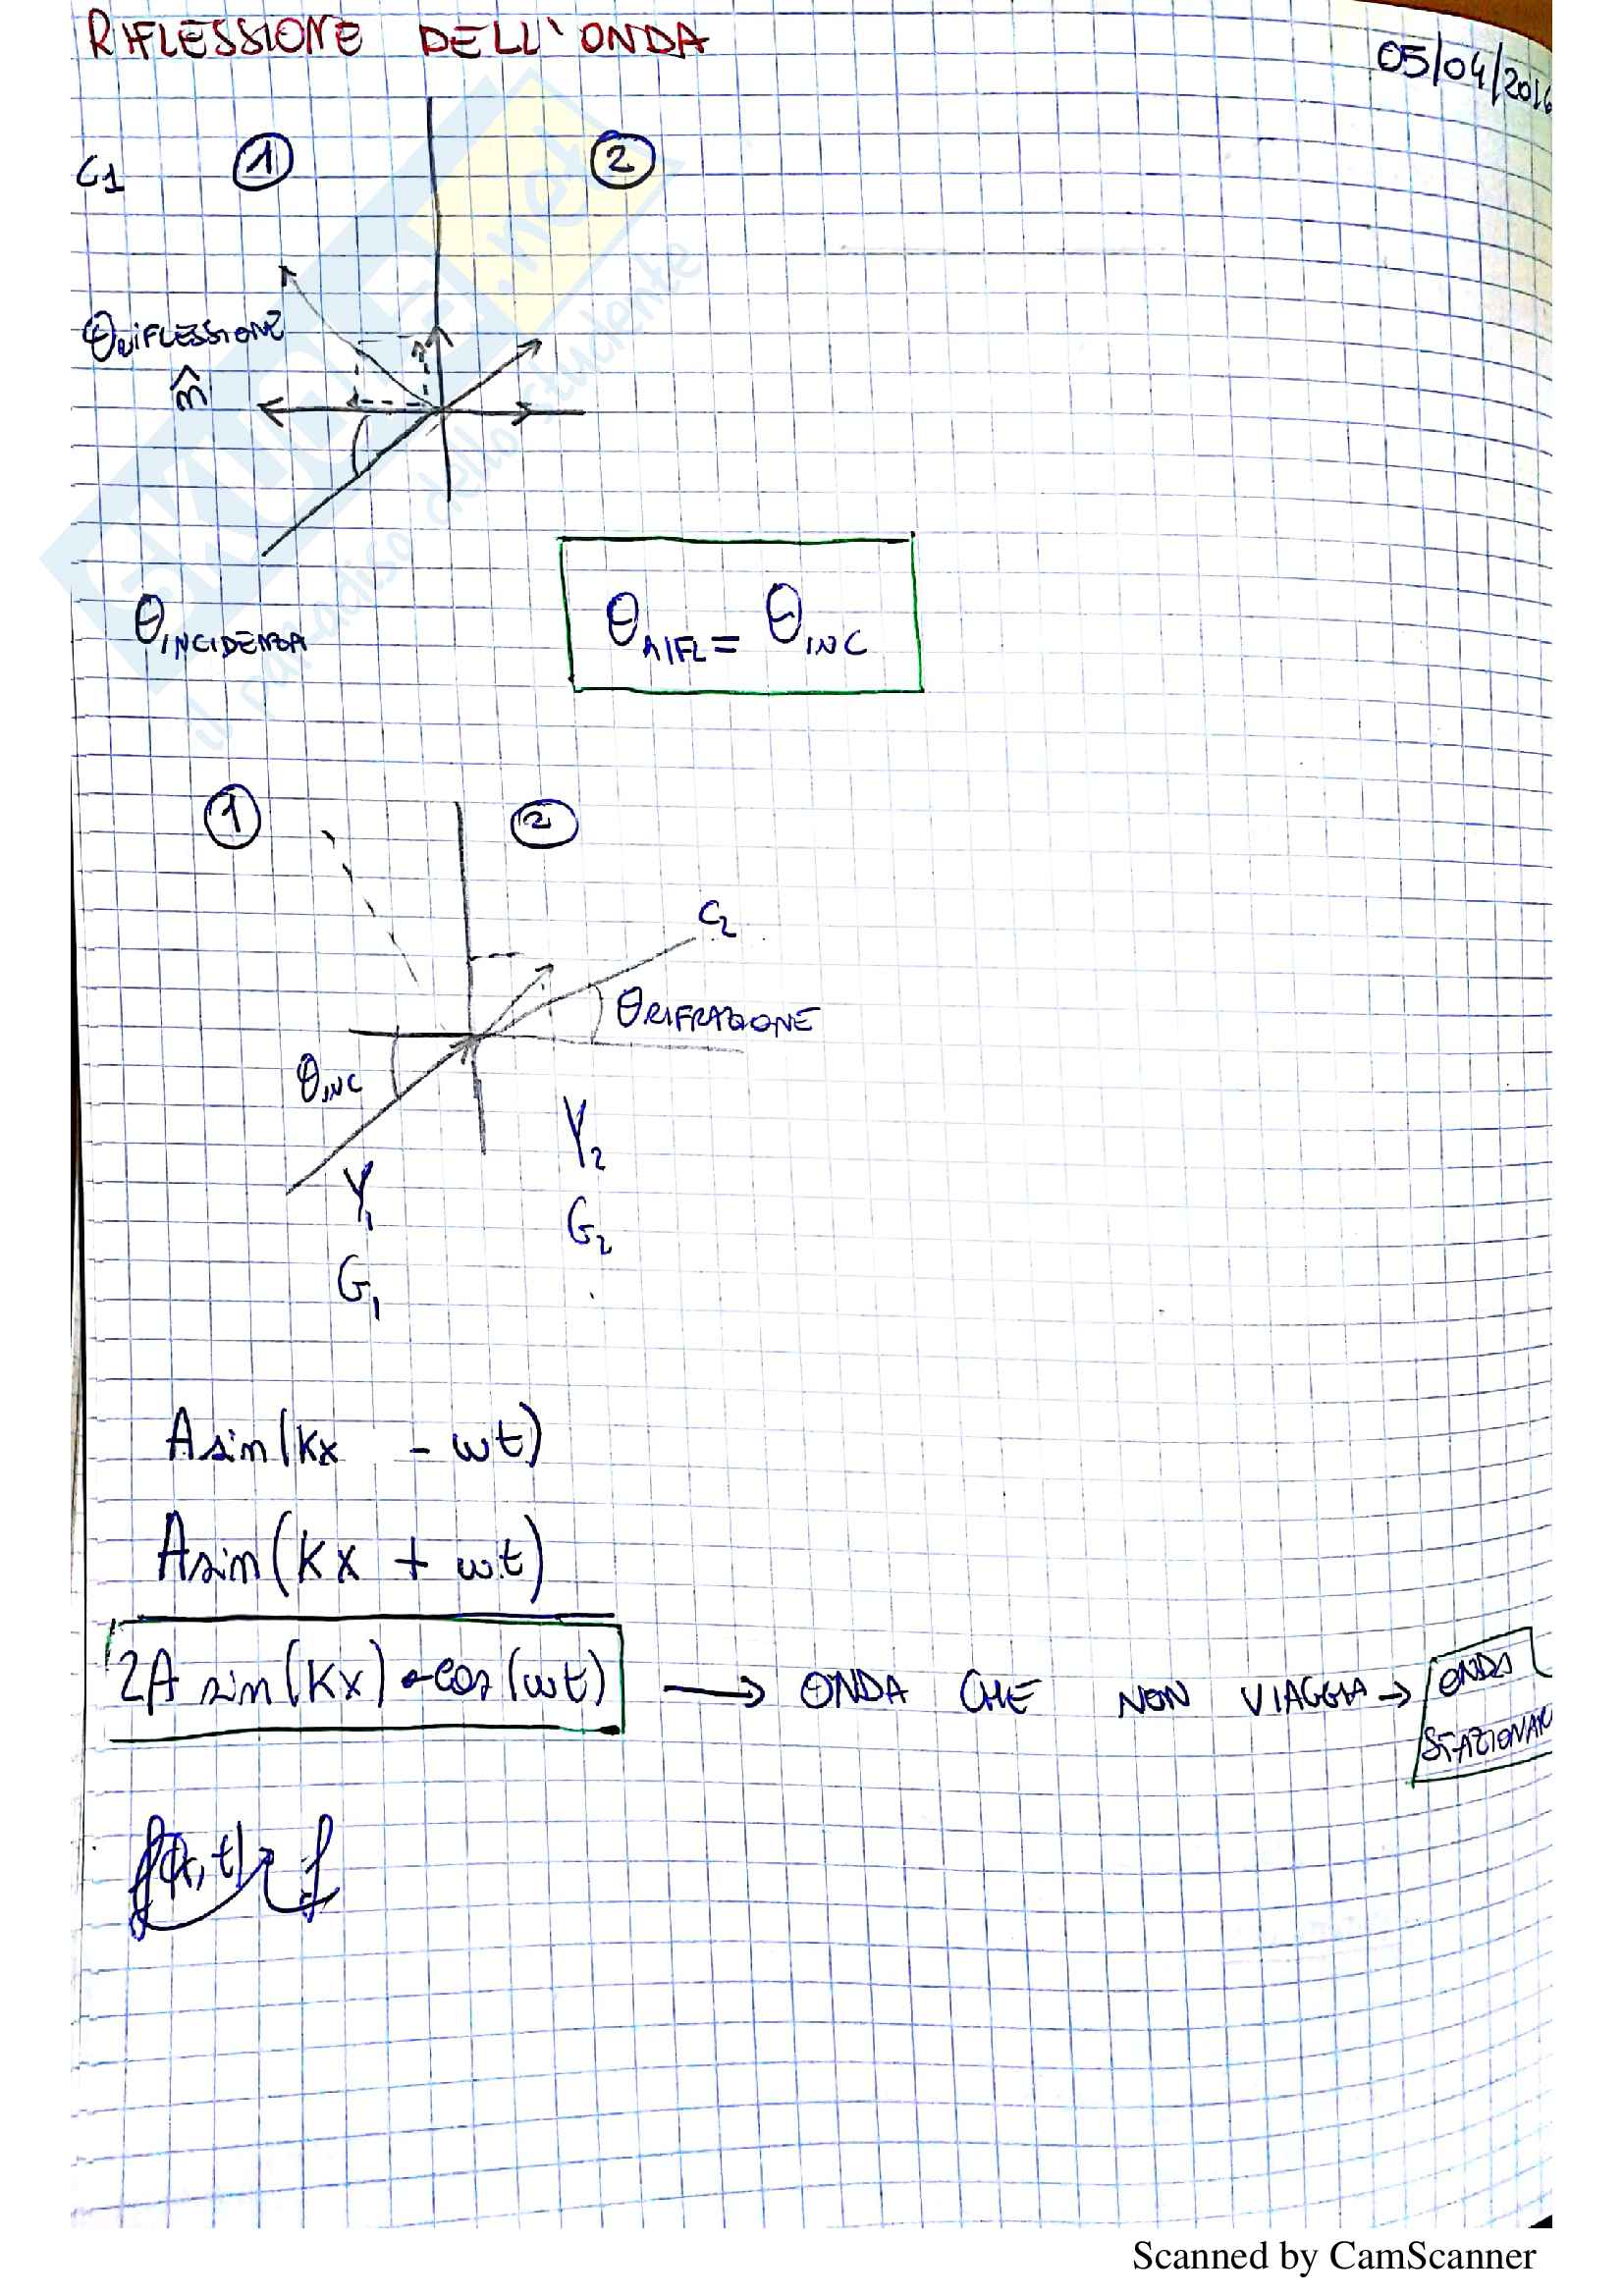 RIFLESSIONE DELL'ONDA
05/04/2016
C1 ① ②
θRIFLESSIONE
n̂
θINCIDENZA
θRIFL = θINC
① ②
C2
θRIFRAZIONE
θINC
Y1 Y2
G1 G2
A sin(kx - ωt)
A sin(kx + ωt)
2A sin(kx) · cos(ωt) → ONDA CHE NON VIAGGIA → ONDA
STAZIONAR
f(x,t)
skuola.net
il paradiso dello studente
Scanned by CamScanner